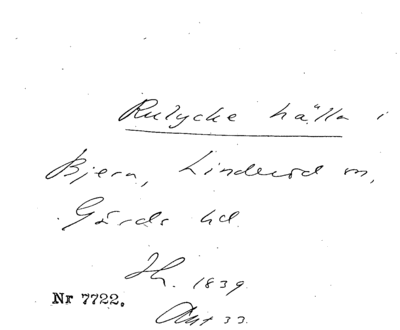 Rulycke hälla i
Bjera, Linderöd sn,
Gärds hd.
Jh. 1839.
Nr 7722.
Ant 33.